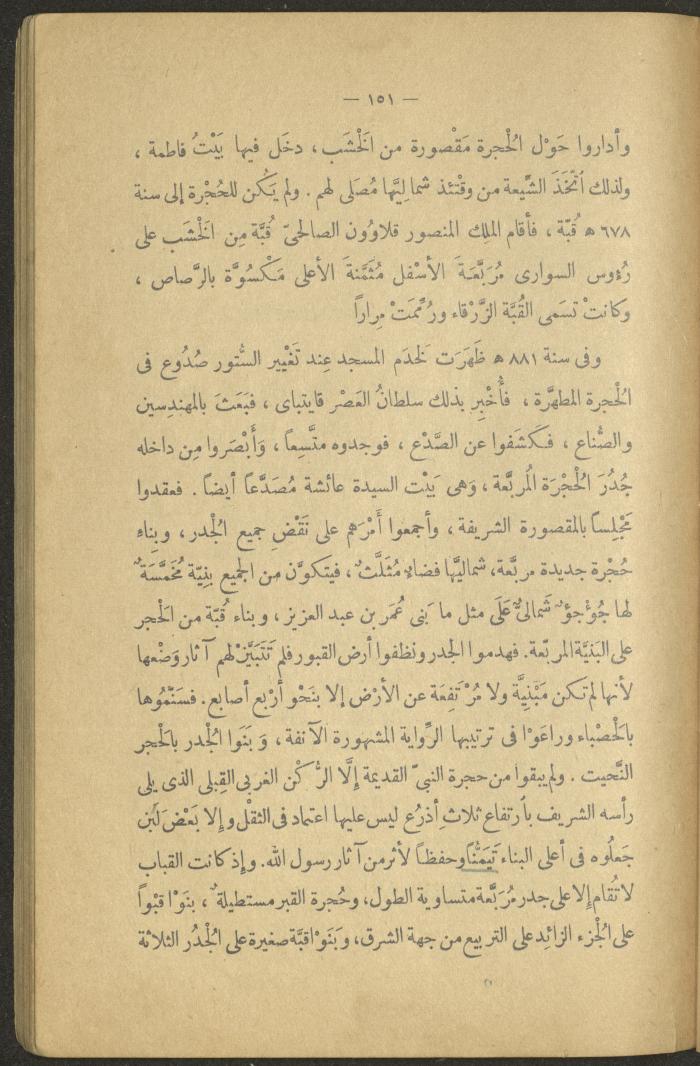 — ١٥١ —
وأداروا حَوْل الحُجرة مَقْصورة من الخَشَب ، دخَل فيها بَيْتُ فاطمة ،
ولذلك اتَّخَذَ الشِّيعة من وقتئذ شماليَّها مُصَلَّى لهم . ولم يَكُن للحُجْرة إلى سنة
٦٧٨ ﻫ قُبَّة ، فأقام الملك المنصور قلاوُون الصالحىّ قُبَّة مِن الخَشَب على
رُؤوس السوارى مُرَبَّعَةَ الأسْفل مُثَمَّنةَ الأعلى مَكْسوَّة بالرَّصاص ،
وكانتْ تسَمى القُبَّة الزَّرْقاء ورُمِّمَتْ مِراراً
وفى سنة ٨٨١ ﻫ ظَهَرَت لخَدَم المسجد عِند تَغْيير السُّتور صُدُوع فى
الحُجرة المطهَّرة ، فأُخْبِر بذلك سلطانُ العَصْر قايتباى ، فبَعَثَ بالمهندِسين
والصُّناع ، فكَشَفوا عن الصَّدْع ، فوجدوه متَّسِعاً ، وَأَبْصَروا مِن داخله
جُدُرَ الحُجْرَة المُربَّعة ، وَهى بَيْت السيدة عائشة مُصَدَّعاً أيضاً . فعقدوا
مَجْلِساً بالمقصورة الشريفة ، وأجمعوا أَمْرَهم على نَقْضِ جميع الجُدر ، وبِناء
حُجْرة جديدة مربَّعة، شماليَّها فضاءٌ مُثَلَّثٌ ، فيتكوَّن من الجميع بِنيّة مُخَمَّسَةٌ
لها جُؤْجؤٌ شَمالىٌّ عَلَى مثل ما بَنى عُمَر بن عبد العزيز ، وبناء قُبّة من الحَجر
على البَنيَّة المربّعة . فهدموا الجدر ونظفوا أرض القبور فلم تَتَبَيَّنْ لهم آثار وَضْعها
لأنها لم تكن مَبْنِيَّة ولا مُرْتَفِعَة عن الأرْض إلا بنَحْو أرْبع أصابع . فسَنَّمُوها
بالحَصْباء ورَاعَوْا فى ترتيبها الرِّواية المشهورة الآنفة ، وَبَنَوا الجُدر بالحَجر
النَّحيت . ولم يبقوا من حجرة النبىّ القديمة إلَّا الرُّكْن الغربى القِبلى الذى يلى
رأسه الشريف بارتفاع ثلاثِ أذرُع ليس عليها اعتماد فى الثقْل وإلا بَعْضَ لَبْن
جَعلُوه فى أعلى البناء تَيَمُّناً وحفظاً لأثر من آثار رسول الله. وإذ كانت القباب
لا تُقام إلا على جدر مُرَبَّعة متساوية الطول، وحُجرة القبر مستطيلةٌ ، بنَوْا قبْواً
على الجُزء الزائِد على التربيع من جهة الشرق، وَبَنَوْا قبَّة صغيرة على الجُدُر الثلاثة